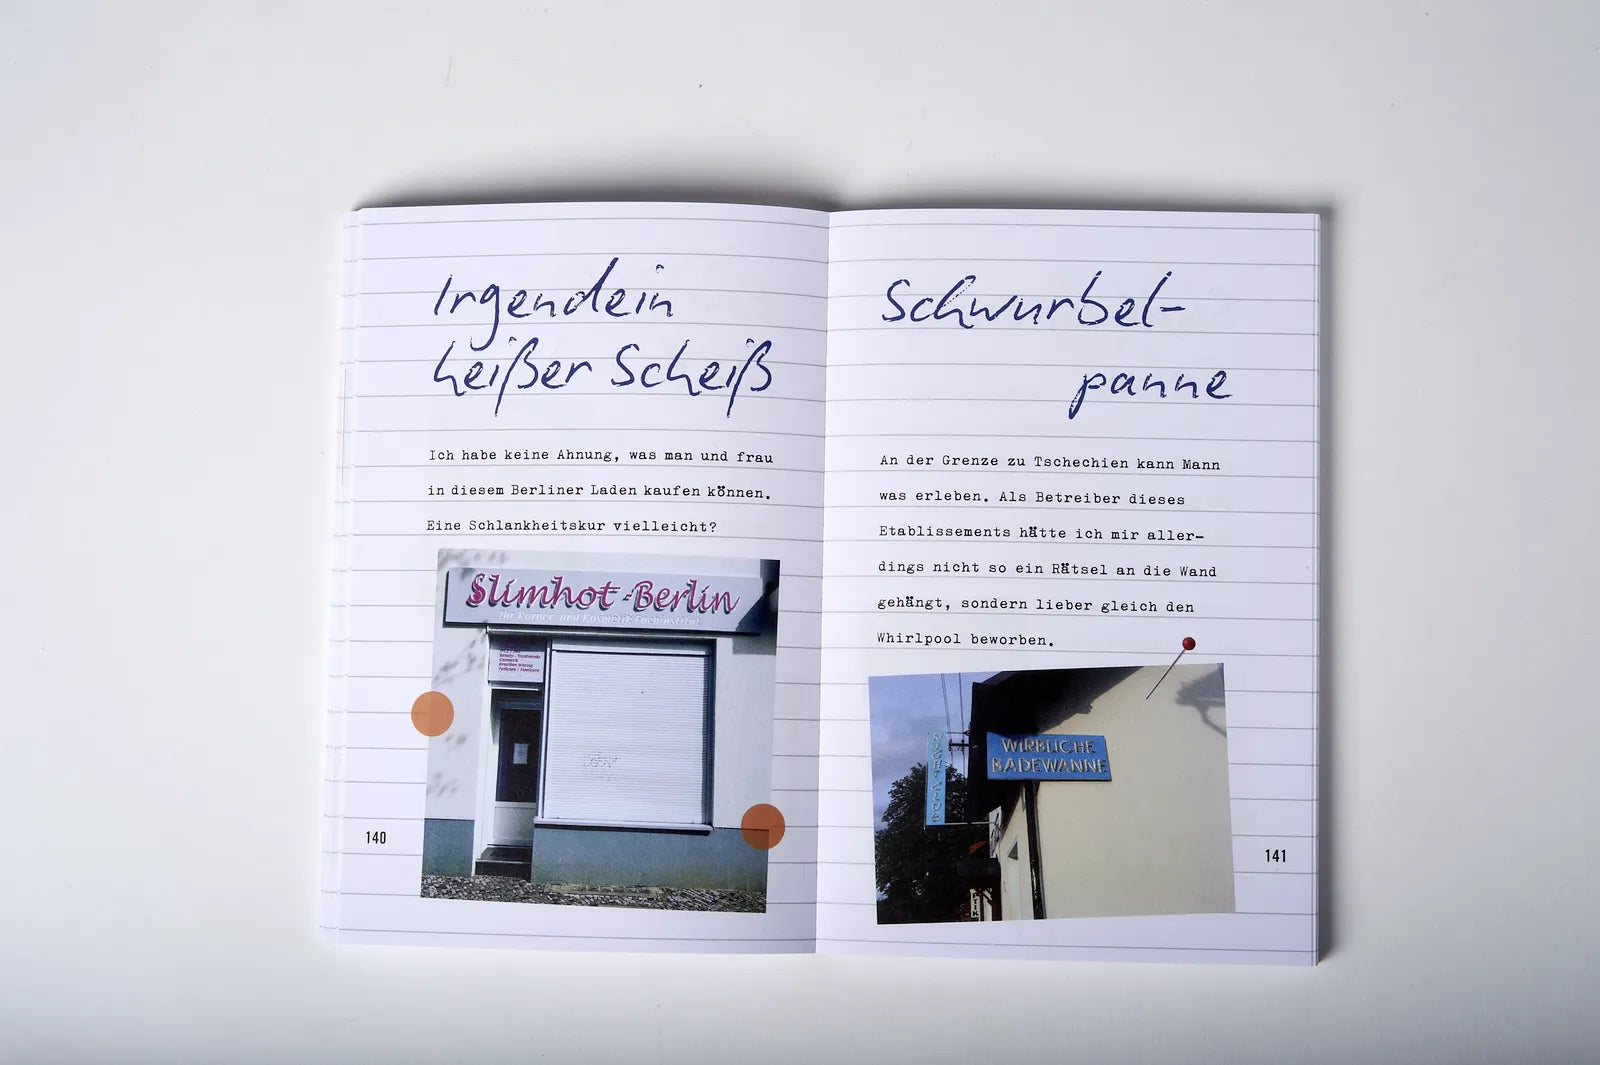 Irgendein
heißer Scheiß
Ich habe keine Ahnung, was man und frau
in diesem Berliner Laden kaufen können.
Eine Schlankheitskur vielleicht?
Slimhot-Berlin
Ihr Körper- und Kosmetik Fachinstitut
140
Schwurbel-
panne
An der Grenze zu Tschechien kann Mann
was erleben. Als Betreiber dieses
Etablissements hätte ich mir aller-
dings nicht so ein Rätsel an die Wand
gehängt, sondern lieber gleich den
Whirlpool beworben.
NIGHT CLUB
WIRBLICHE
BADEWANNE
141